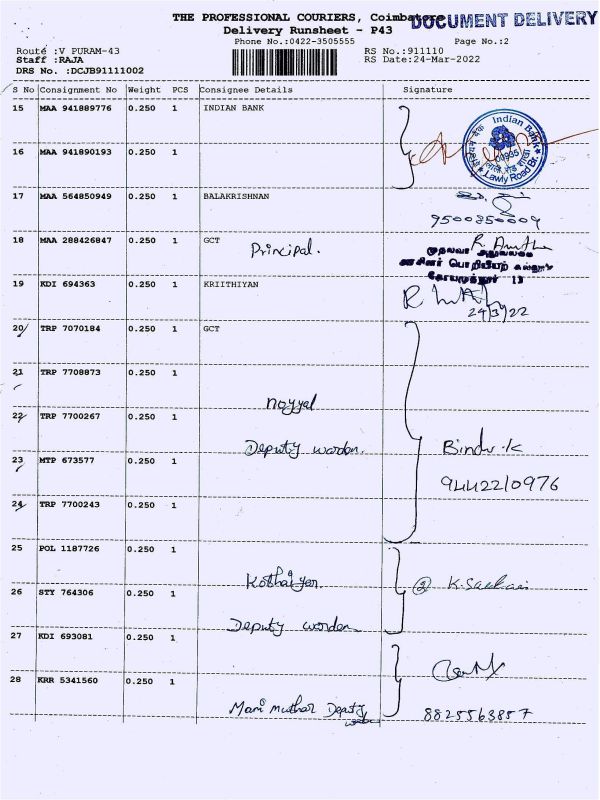 THE PROFESSIONAL COURIERS, Coimbatore
DOCUMENT DELIVERY
Delivery Runsheet - P43
Phone No.:0422-3505555 Page No.:2
Route :V PURAM-43 RS No.:911110
Staff :RAJA RS Date:24-Mar-2022
DRS No. :DCJB91111002
S No Consignment No Weight PCS Consignee Details Signature
15 MAA 941889776 0.250 1 INDIAN BANK
Indian Bank
00935
Lawly Road Br.
16 MAA 941890193 0.250 1
17 MAA 564850949 0.250 1 BALAKRISHNAN
9500350009
18 MAA 288426847 0.250 1 GCT Principal.
19 KDI 694363 0.250 1 KRIITHIYAN
24/3/22
20 TRP 7070184 0.250 1 GCT
21 TRP 7708873 0.250 1
noyyal
22 TRP 7700267 0.250 1
Deputy warden. Bindu.K
23 MTP 673577 0.250 1
9442210976
24 TRP 7700243 0.250 1
25 POL 1187726 0.250 1
26 STY 764306 0.250 1
Deputy warden
27 KDI 693081 0.250 1
28 KRR 5341560 0.250 1
Deputy
8825563857